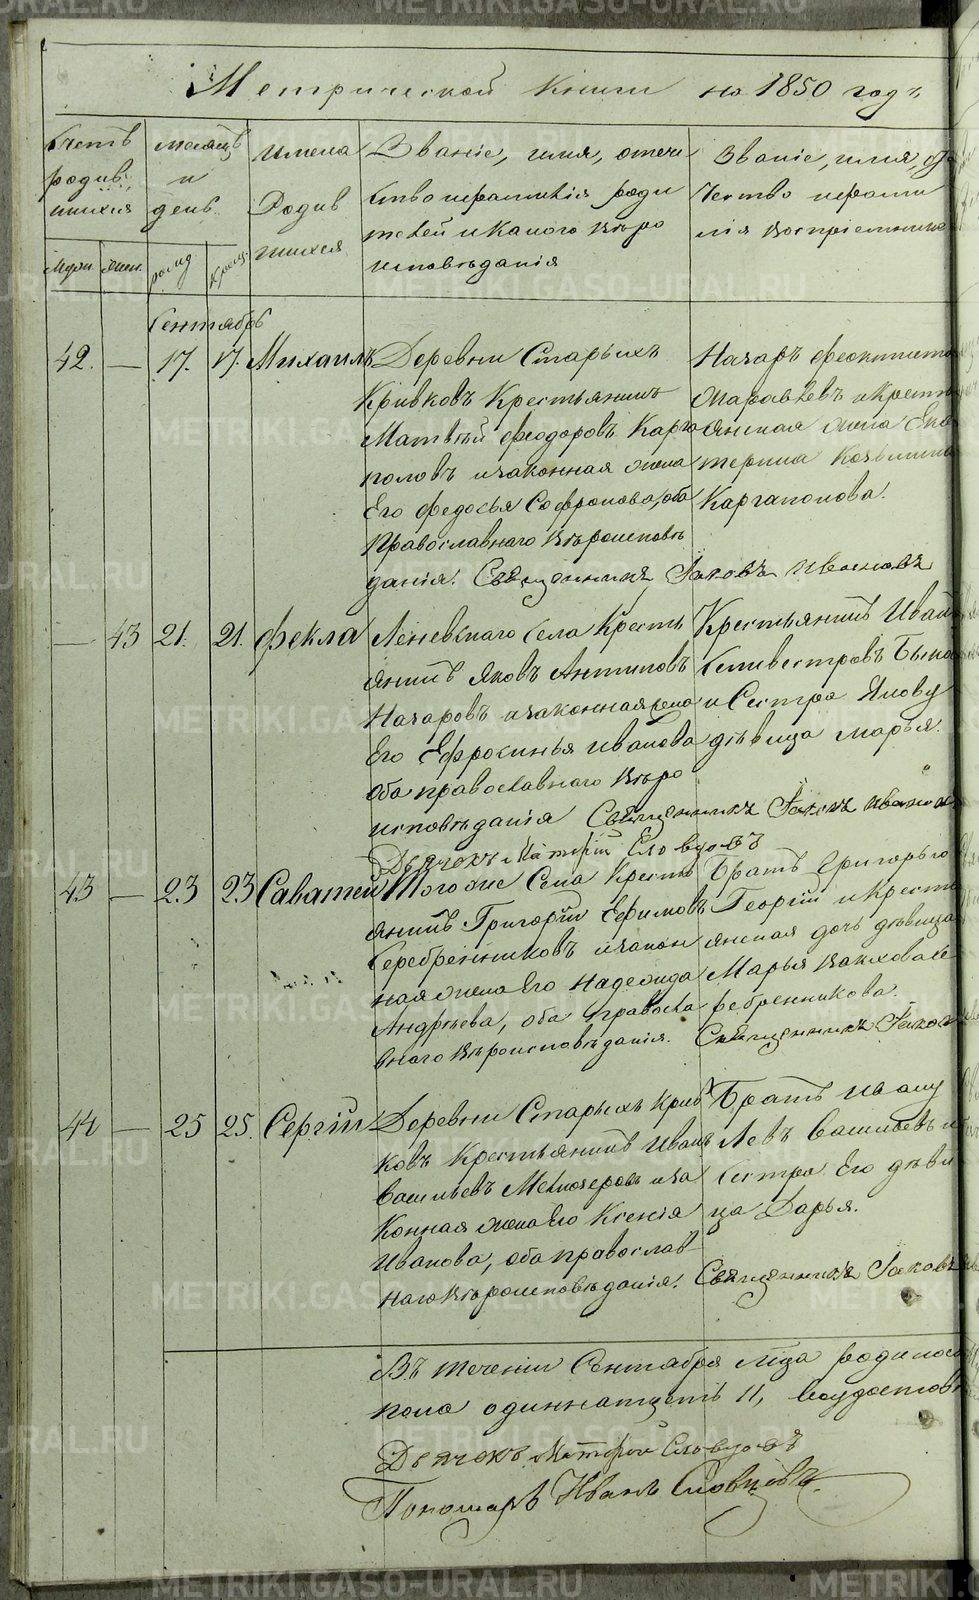 Метрической книги на 1850 годъ
Счетъ родив шихся
Муж. Жен.
месяцъ и день
рожд крещ.
имена Родив шихся
Званіе, имя, отече
ство и фамилія роди
телей и какого вѣро
исповѣданія
Званіе, имя, оте
чество и фами
лія воспріемников
Сентябрь
42. — 17. 17. Михаилъ
Деревни Старыхъ
Кривковъ Крестьянинъ
Матвѣй Феодоровъ Карга
половъ и законная жена
Его Федосья Софронова, оба
Православнаго вѣроисповѣ
данія. Священникъ Іаковъ Ивановъ
Назаръ
и Кресть
янская жена Ека
терина Козьмина
Каргаполова.
— 43 21. 21. Фекла
Леневскаго села Кресть
янинъ Яковъ Антиповъ
Назаровъ и законная жена
Его Ефросинья Иванова
оба православнаго вѣро
исповѣданія Священникъ Іаковъ Ивановъ
Дьячекъ
Крестьянинъ Иванъ
Селивестровъ
и Сестра Якову
дѣвица Марья.
43 — 23 23 Саватей
Того же Села Кресть
янинъ Григорій Ефимовъ
Серебренниковъ и закон
ная жена Его Надежда
Андрѣева, оба правосла
внаго вѣроисповѣданія.
Братъ Григорью
Георгій и Кресть
янская дочь дѣвица
Марья Се
ребренникова.
Священникъ Іаков
44 — 25 25. Сергій
Деревни Старыхъ Крив
ковъ Крестьянинъ Иванъ
Васильевъ и за
конная жена Его Ксенія
Иванова, оба православ
наго вѣроисповѣданія.
Братъ Ивану
Левъ Васильевъ и
сестра Его дѣви
ца Дарья.
Священникъ Іаковъ
Въ теченіи Сентября мца родилось
пола одиннатцеть 11,
Дьячекъ
Пономарь Иванъ Словцовъ.
METRIKI.GASO-URAL.RU